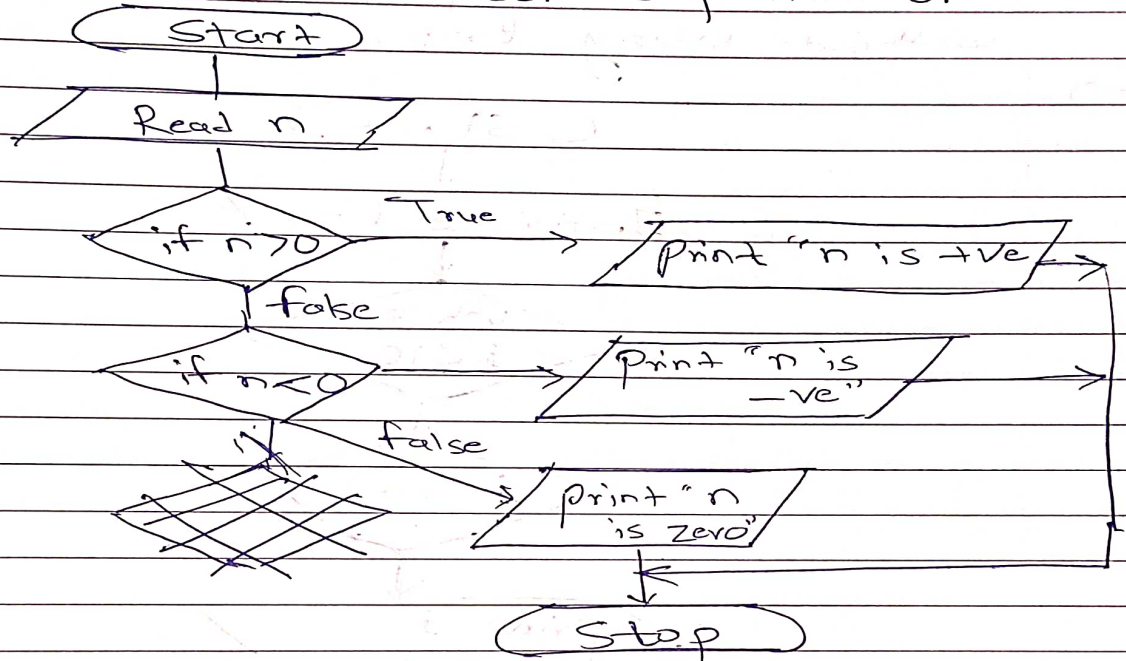 Start
Read n
if n>0
True
print "n is +ve
false
if n<0
print "n is
-ve"
false
print "n
is zero"
Stop